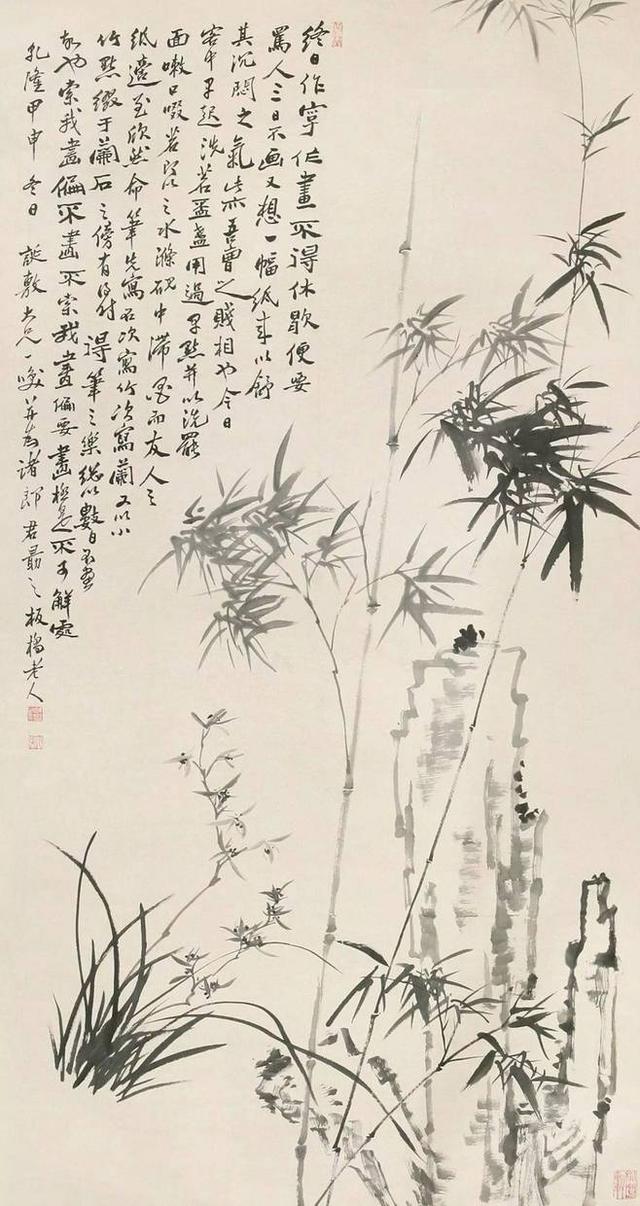 終日作字作畫不得休歇便要
罵人三日不画又想一幅紙来以舒
其沉悶之氣此亦吾曹之賤相也今日
客中早起洗盃盞用過早點并以洗罷
面嗽口啜之水滌硯中滯墨而友人之
紙適至欣然命筆先寫石次寫竹次寫蘭又以小
竹點綴于蘭石之傍有得時得筆之樂總以數日不畫
故也索我畫偏不畫不索我畫偏要畫極是不可解處
乾隆甲申冬日 誕敷大兄一咲并為諸郎君勗之板橋老人